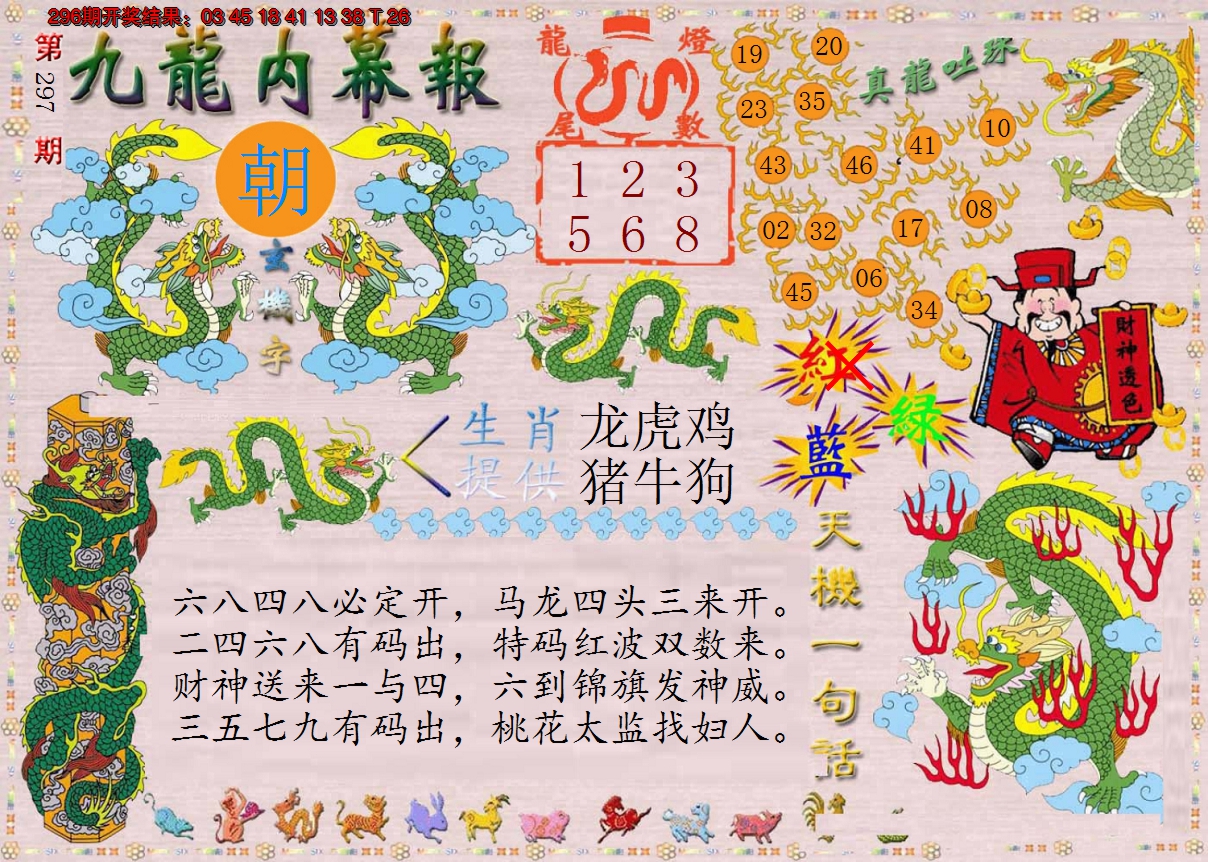 296期开奖结果：03 45 18 41 13 38 T 26
第297期
九龍内幕報
朝
玄機字
龍燈
尾數
1 2 3
5 6 8
真龍吐珠
19 20
23 35
43 46 41 10
02 32 17 08
45 06 34
紅
綠
藍
財神透色
生肖 龙虎鸡
提供 猪牛狗
天機一句話
六八四八必定开，马龙四头三来开。
二四六八有码出，特码红波双数来。
财神送来一与四，六到锦旗发神威。
三五七九有码出，桃花太监找妇人。